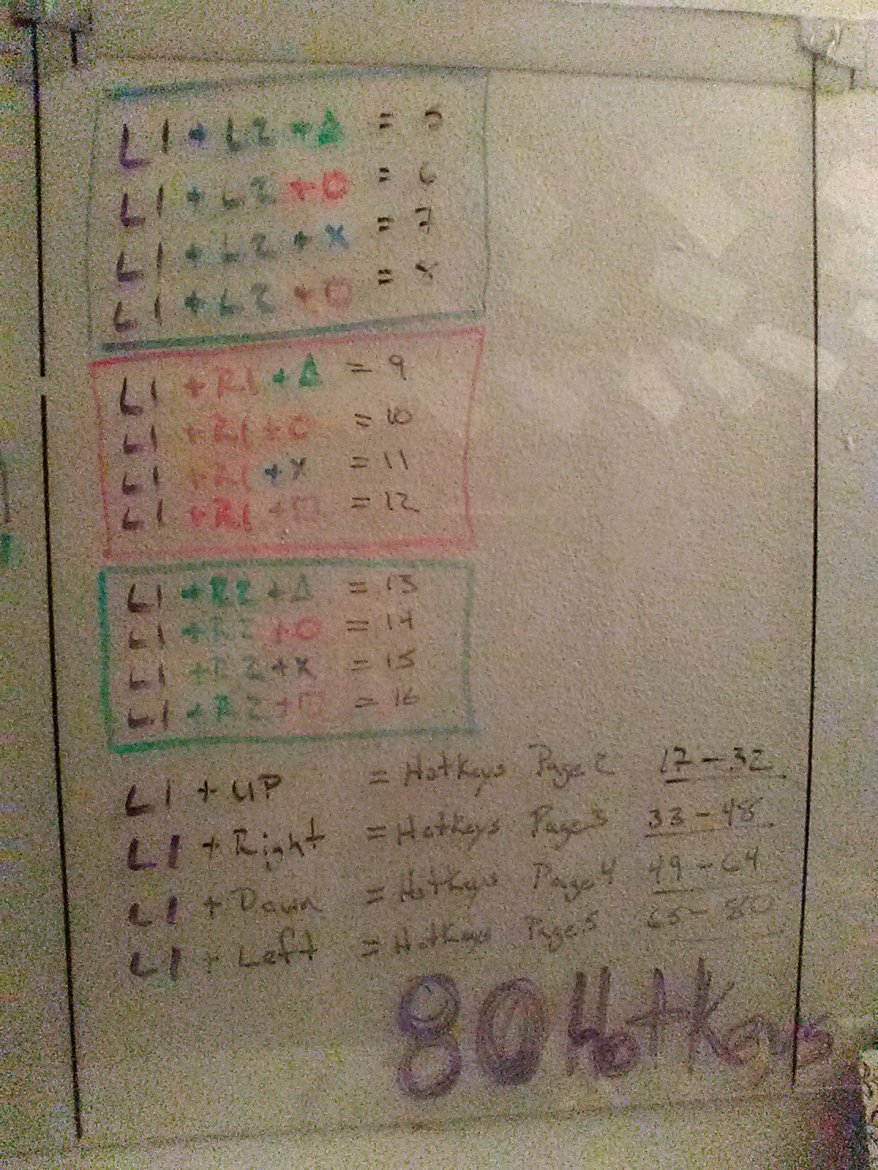 L1 + L2 + Δ = 5
L1 + L2 + O = 6
L1 + L2 + X = 7
L1 + L2 + □ = 8
L1 + R1 + Δ = 9
L1 + R1 + O = 10
L1 + R1 + X = 11
L1 + R1 + □ = 12
L1 + R2 + Δ = 13
L1 + R2 + O = 14
L1 + R2 + X = 15
L1 + R2 + □ = 16
L1 + UP = Hotkeys Page 2 17-32
L1 + Right = Hotkeys Page 3 33-48
L1 + Down = Hotkeys Page 4 49-64
L1 + Left = Hotkeys Page 5 65-80
80 Hotkeys